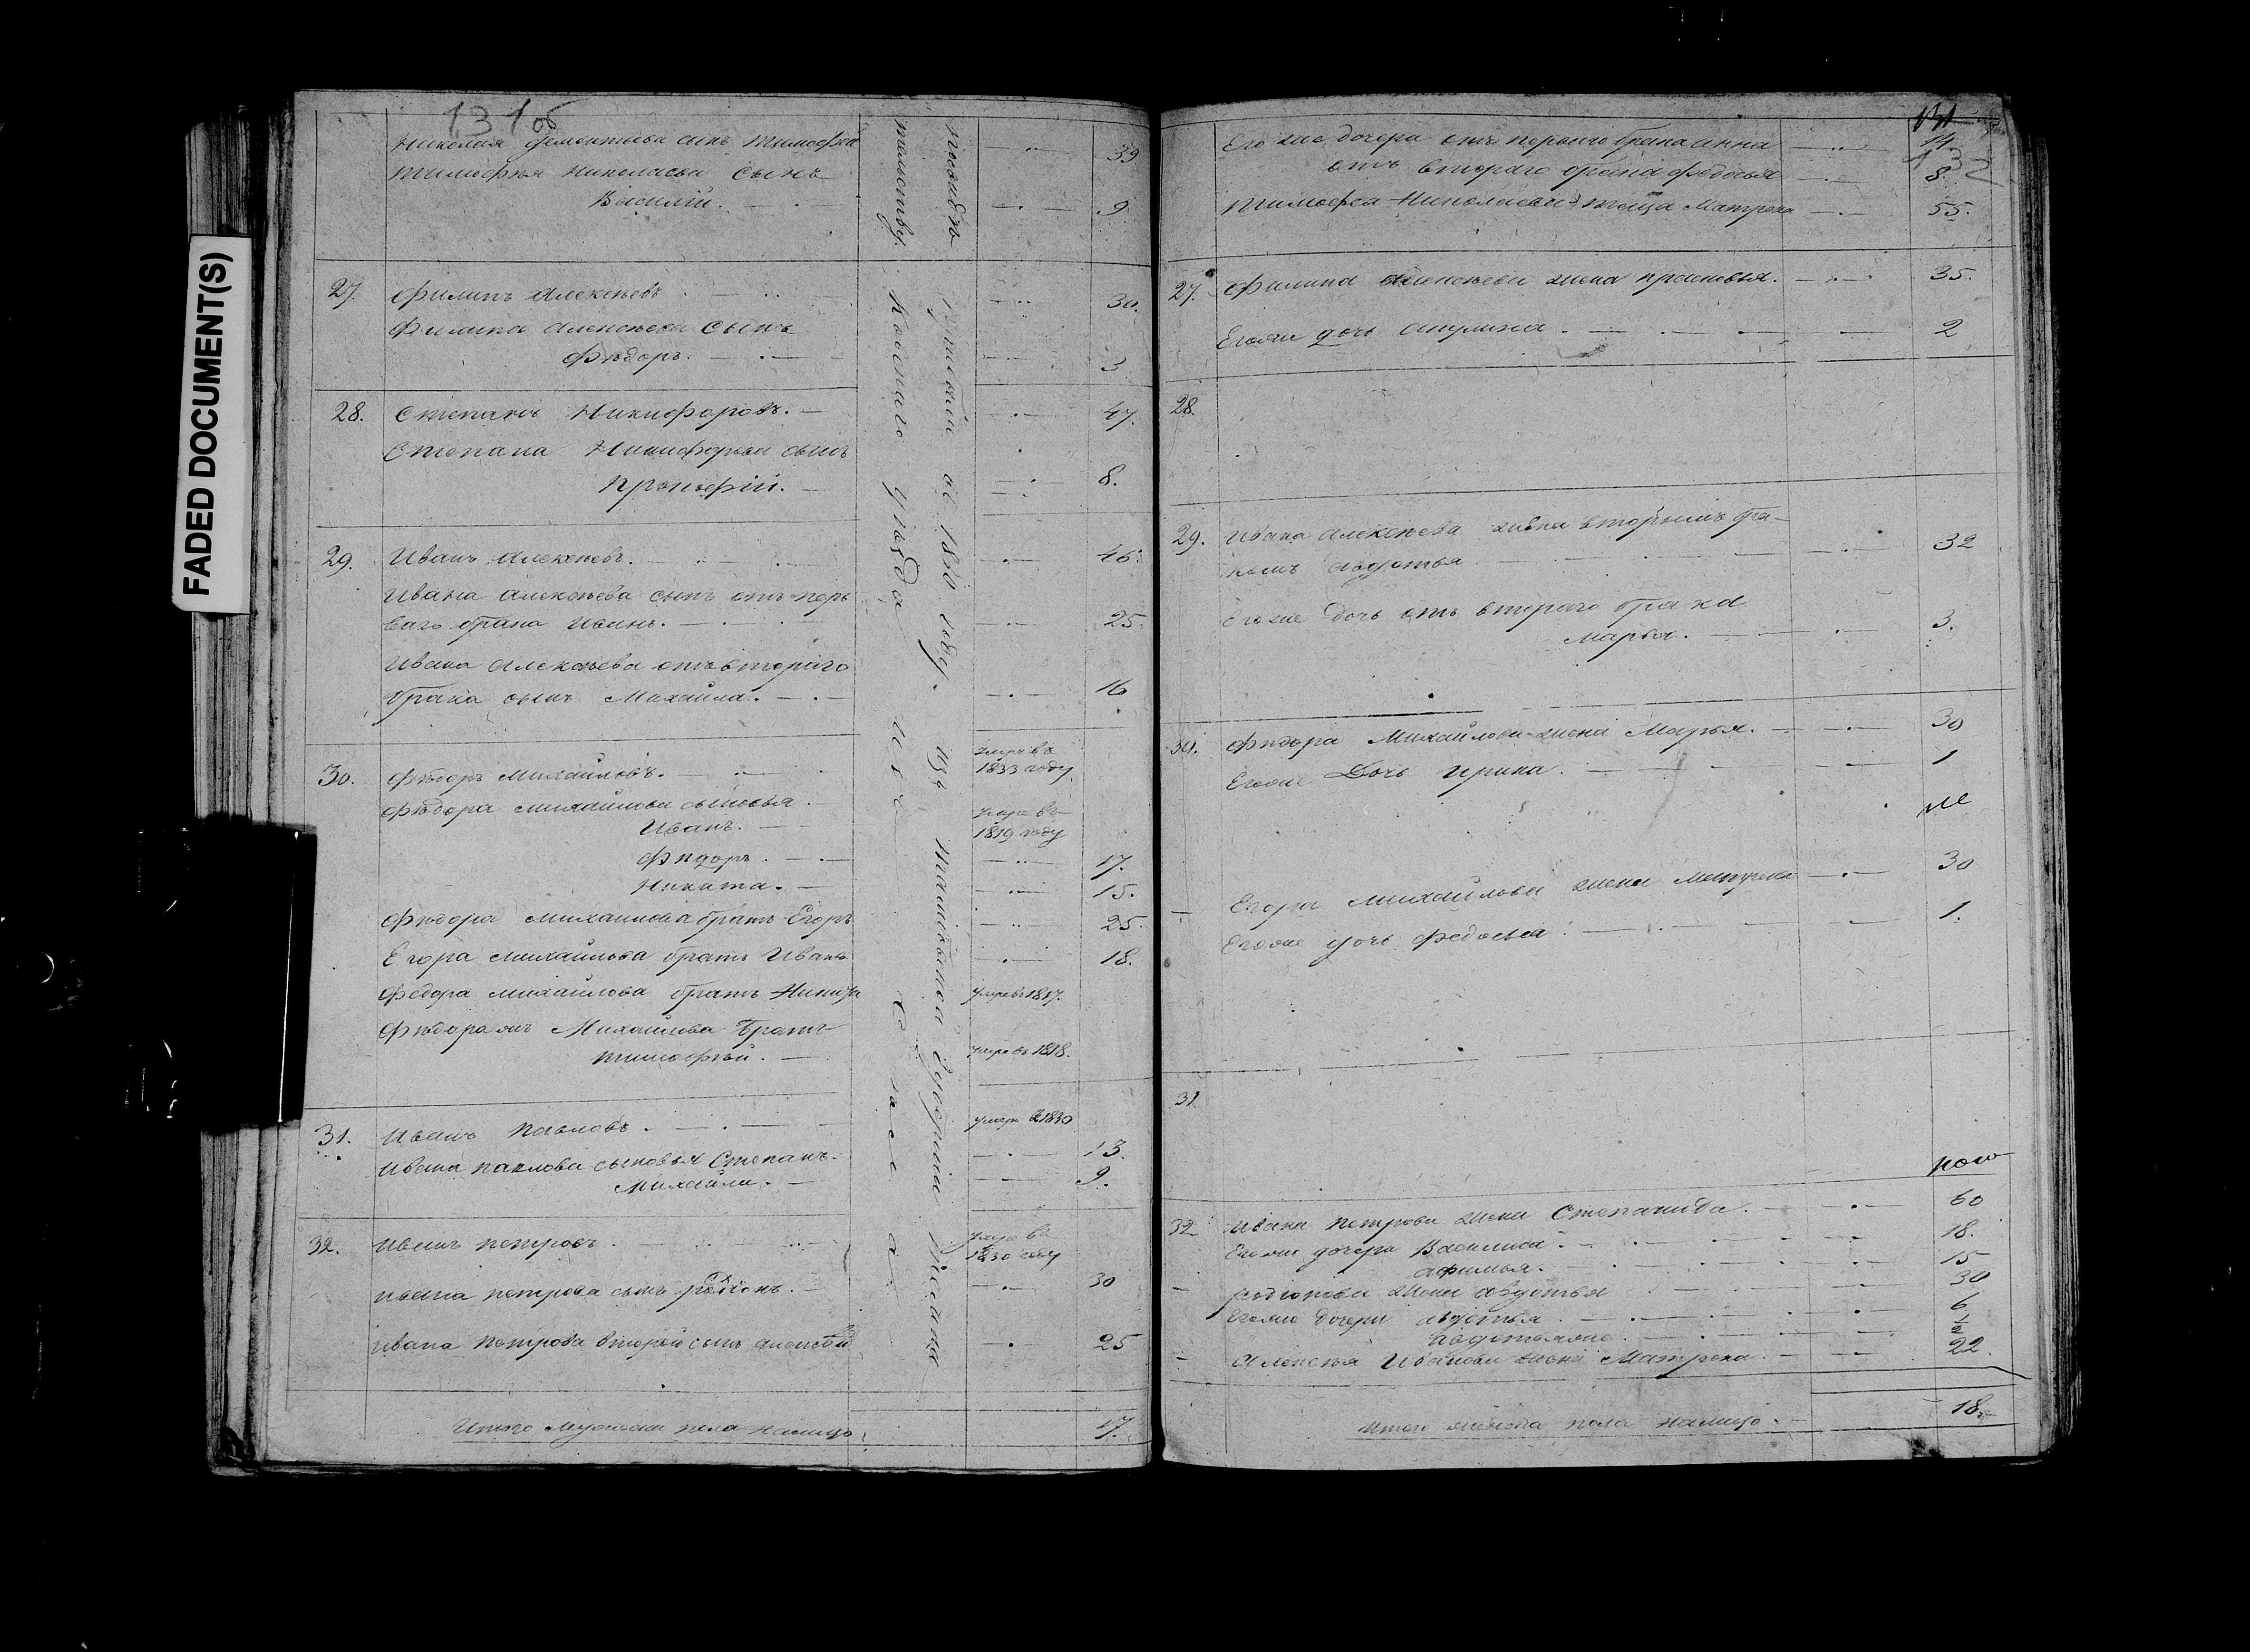 FADED DOCUMENT(S)
131об
Николая Дементьева сынъ Тимофей — 39
Тимофея Николаева сынъ
Василій. — 9.
27. Филипъ Алексѣевъ — 30.
Филипа Алексѣева сынъ
Фѣдоръ. — 3
28. Степанъ Никифоровъ. — 47.
Степана Никифорова сынъ
Прокофій. — 8.
29. Иванъ Алексѣевъ. — 46.
Ивана Алексѣева сынъ отъ пер
ваго брака Иванъ. — 25.
Ивана Алексѣева отъ втораго
брака сынъ Михайла. — 16
30. Фѣдоръ Михайловъ. — умре въ
1833 году
Фѣдора Михайлова сыновья
Иванъ. — умре въ
1819 году
Фѣдоръ. — 17.
Никита. — 15.
Фѣдора Михайлова братъ Егоръ — 25.
Егора Михайлова братъ Иванъ — 18.
Федора Михайлова братъ умре въ 1817.
Фѣдора жъ Михайлова братъ
Тимофѣй. — умре въ 1818.
31. Иванъ Павловъ. — умре въ 1830
Ивана Павлова сыновья Степанъ. — 13.
Михайла. — 9.
32. Иванъ Петровъ. — умре въ
1830 году
Ивана Петрова сынъ Родіонъ. — 30
Ивана Петрова второй сынъ Алексѣй — 25
Итого мужеска пола налицо 17.
въ 1830 году. изъ Тамбовской Губерніи
уѣзда села
131
132
Его же дочери отъ перваго брака Анна — 14.
отъ втораго брака Федосья — 8.
Тимофея Николаева теща Матрена — 55.
27. Филипа Алексѣева жена Прасковья. — 35.
Егоже дочь Акулина. — 2
28.
29. Ивана Алексѣева жена вторымъ бра-
комъ Авдотья — 32
Егоже дочь отъ втораго брака
Марья. — 3.
30. Фѣдора Михайлова жена Марья. — 30
Егоже дочь Ирина. — 1
Егора Михайлова жена Матрена — 30
Егоже дочь Федосья — 1.
31
32 Ивана Петрова жена Степанида. — 60
Егоже дочери Василиса — 18.
Афимья. — 15
Родіонова жена Авдотья — 30
Егоже дочери Авдотья — 6
Авдотьяже. — ½
Алексѣя Иванова жена Матрена — 22.
Итого женска пола налицо. — 18.